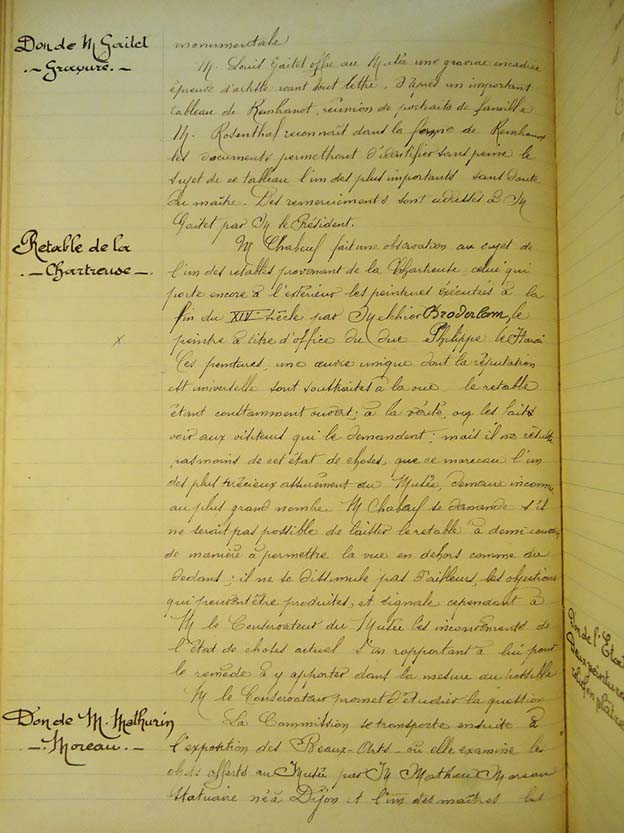 Don de M Gaitet
-. Gravure. -
monumentale
M. Louis Gaitet offre au Musée une gravure encadrée
épreuve d'artiste avant tout lettre, d'après un important
tableau de Rembrandt, réunion de portraits de famille
M. Rosenthal reconnaît dans la forme de Rembrandt
les documents permettant d'identifier sans peine le
sujet de ce tableau l'un des plus importants sans doute
du maître. Des remerciements sont adressés à M
Gaitet par M le Président.
Retable de la
-. Chartreuse -.
M Chabeuf fait une observation au sujet de
l'un des retables provenant de la Chartreuse celui qui
porte encore à l'extérieur les peintures exécutées à la
fin du XIVe siècle par Melchior Broderlam, le
x
peintre à titre d'office du duc Philippe le Hardi
Ces peintures, une œuvre unique dont la réputation
est universelle sont soustraites à la vue le retable
étant constamment ouvert; à la vérité, on les fait
voir aux visiteurs qui le demandent; mais il ne résulte
pas moins de cet état de choses, que ce morceau l'un
des plus précieux assurément du Musée, demeure inconnu
au plus grand nombre. M Chabeuf se demande s'il
ne serait pas possible de laisser le retable à demi ouvert
de manière à permettre la vue en dehors comme du
dedans; il ne se dissimule pas d'ailleurs, les objections
qui peuvent être produites, et signale cependant à
M le Conservateur du Musée les inconvénients de
l'état de choses actuel s'en rapportant à lui pour
le remède à y apporter dans la mesure du possible
M le Conservateur promet d'étudier la question
Don de M. Mathurin
-. Moreau. -
La Commission se transporte ensuite à
l'exposition des Beaux-Arts - où elle examine les
objets offerts au Musée par M Mathurin Moreau
statuaire né à Dijon et l'un des maîtres les
Don de l'Etat